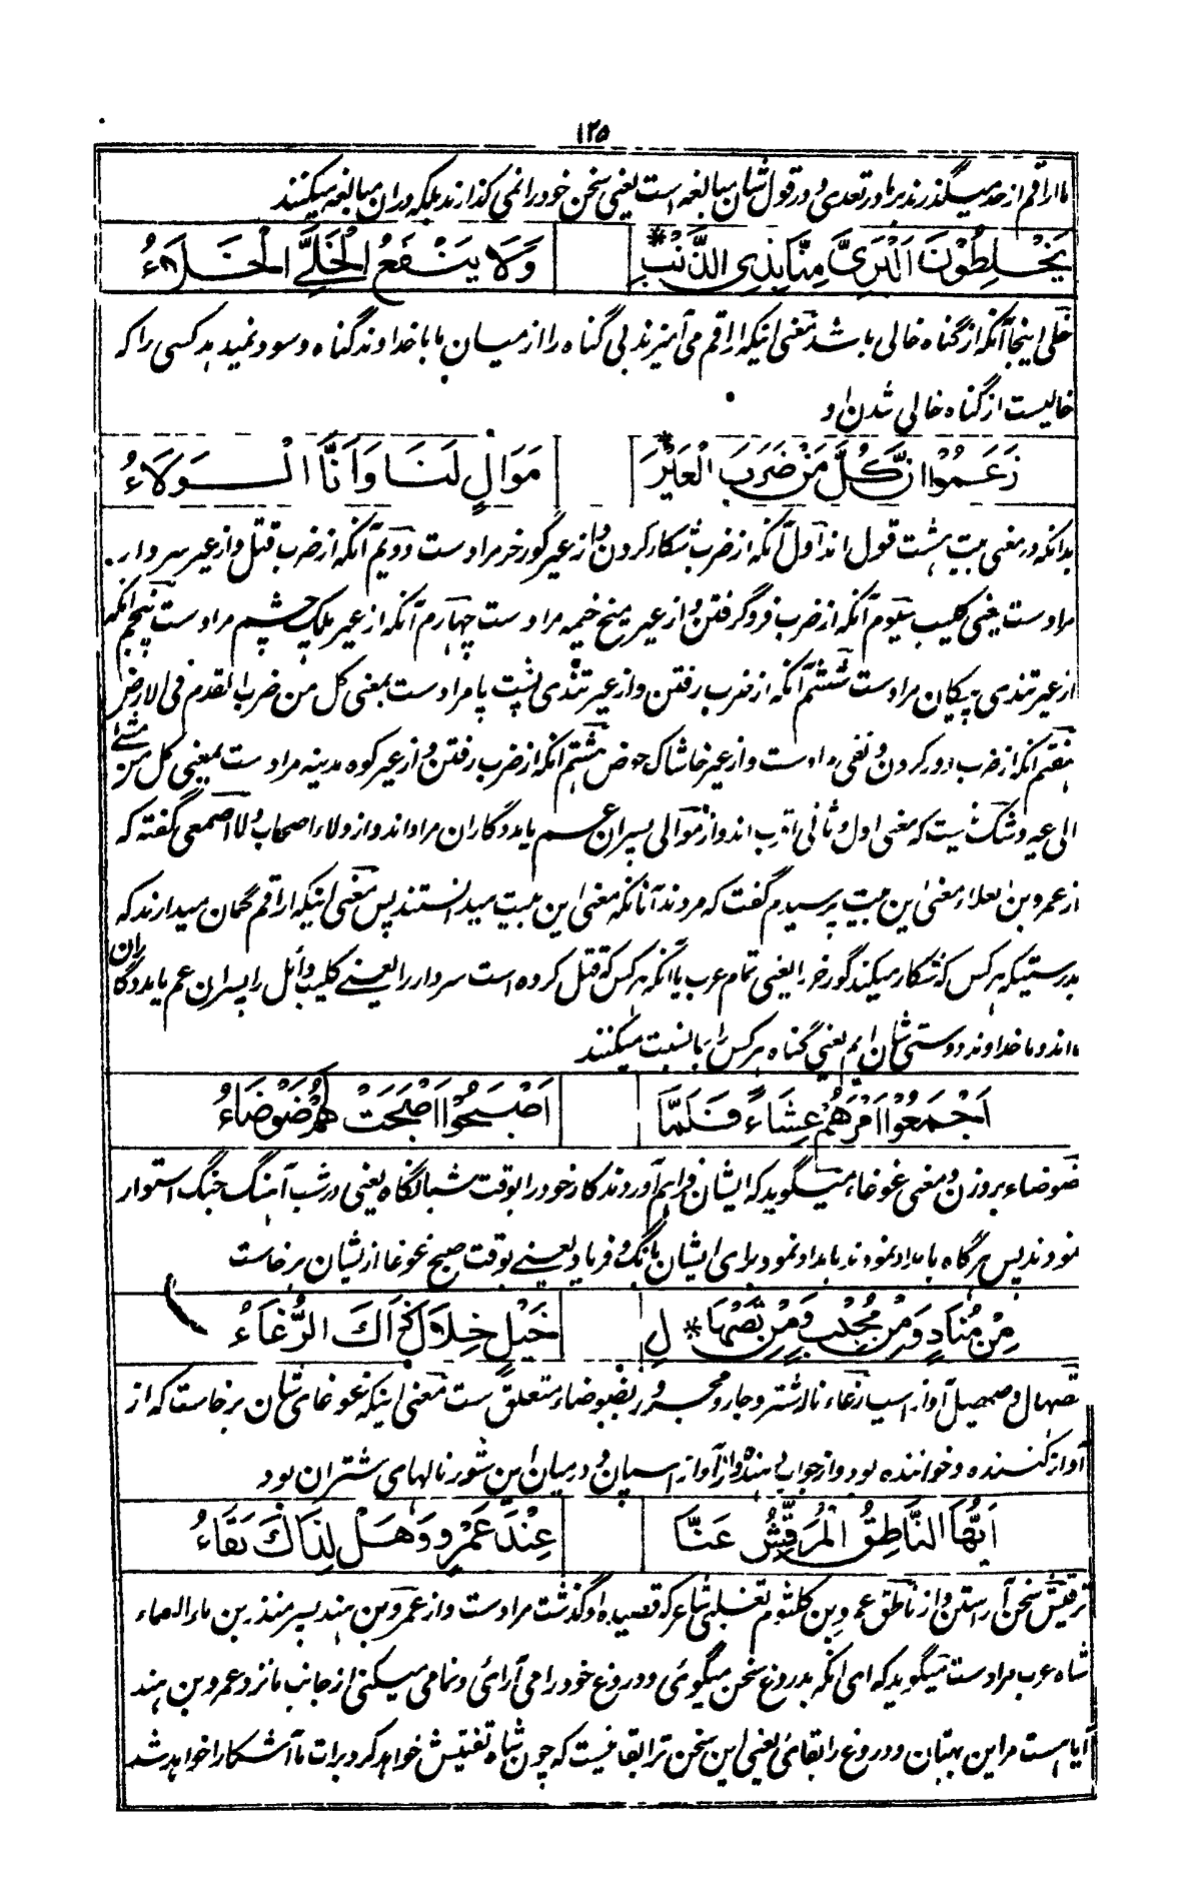 ١٢٥
ماراقم از حد میگذرند بر ما در تعدی و در قول شان مبالغه است یعنی سخن خود را نمی گذارند بلکه دران مبالغه میکنند
يَخْلِطُوْنَ الْبَرِيَّ مِنَّا بِذِي الذَّنْبِ* وَلَا يَنْفَعُ الْخَلِيَّ الْخَلَاءُ
خلی اینجا آنکه از گناه خالی باشد معنی اینکه اراقم می آمیزند بی گناه را از میان ما با خداوند گناه و سود نمیدهد کسی را که
خالیست از گناه خالی شدن او
زَعَمُوْا اَنَّ كُلَّ مَنْ ضَرَبَ الْعَيْرَ* مَوَالٍ لَنَا وَاَنَّا الْوَلَاءُ
بدانکه در معنی بیت هشت قول اند اول آنکه از ضرب شکار کردن و از عیر گورخر مراد ست دویم آنکه از ضرب قتل و از عیر سردار
مراد ست یعنی کلیب سیوم آنکه از ضرب فرو گرفتن و از عیر میخ خیمه مراد ست چهارم آنکه از عیر پلک چشم مراد ست پنجم آنکه
از عیر تندی پیکان مراد ست ششم آنکه از ضرب رفتن و از عیر تندی پشت پا مراد ست بمعنی کل من ضرب القدم فی الارض
هفتم آنکه از ضرب دور کردن و نفی مراد ست و از عیر خاشاک حوض هشتم آنکه از ضرب رفتن و از عیر کوه مدینه مراد ست بمعنی کل من مشے
الی عیر و شک نیست که معنی اول و ثانی اقرب اند و از موالی پسران عم یا مددگاران مراد اند و از ولاء اصحاب ولا اصمعی گفته که
از عمرو بن العلاء معنی این بیت پرسیدم گفت که مردند آنانکه معنی این بیت میدانستند پس معنی اینکه اراقم گمان میدارند که
بدرستیکه هر کس که شکار میکند گورخر را یعنی تمام عرب یا آنکه هر کس که قتل کرده است سردار را یعنے کلیب وائل را پسران عم یا مددگاران
ما اند و ما خداوند دوستی شان ایم یعنی گناه هر کس را بما نسبت میکنند
اَجْمَعُوْا اَمْرَهُمْ عِشَاءً فَلَمَّا اَصْبَحُوْا اَصْبَحَتْ لَهُمْ ضَوْضَاءُ
ضوضاء بروزن و معنی غوغاء میگوید که ایشان فراهم آوردند کار خود را بوقت شبانگاه یعنی در شب آهنگ جنگ استوار
نمودند پس هرگاه بامداد نمودند بامداد نمود برای ایشان بانگ و فریاد یعنے بوقت صبح غوغا از ایشان برخاست
مِنْ مُنَادٍ وَمِنْ مُجِيْبٍ وَمِنْ تَصْهَا* لِ خَيْلٍ خِلَالَ ذَاكَ الرُّغَاءُ
تصهال و صهیل آواز اسپ رغاء ناله شتر و جار و مجرور بضوضاء متعلق ست معنی اینکه غوغای شان برخاست که از
آواز کننده و خواننده بود و از جواب دهنده و از آواز اسپان و درمیان این شور نالهای شتران بود
اَيُّهَا النَّاطِقُ الْمُرَقِّشُ عَنَّا عِنْدَ عَمْرٍو وَهَلْ لِذَاكَ بَقَاءُ
ترقیش سخن آراستن و از ناطق عمرو بن کلثوم تغلبی شاعر که قصیده او گذشت مراد ست و از عمرو بن هند پسر منذر بن ماء السماء
شاه عرب مراد ست میگوید که ای آنکه بدروغ سخن میگوئی و دروغ خود را می آرائی و نمامی میکنی از جانب ما نزد عمرو بن هند
آیا هست مر این بهتان و دروغ را بقائی یعنی این سخن ترا بقا نیست که چون شاه تفتیش خواهد کرد برات ما آشکارا خواهد شد